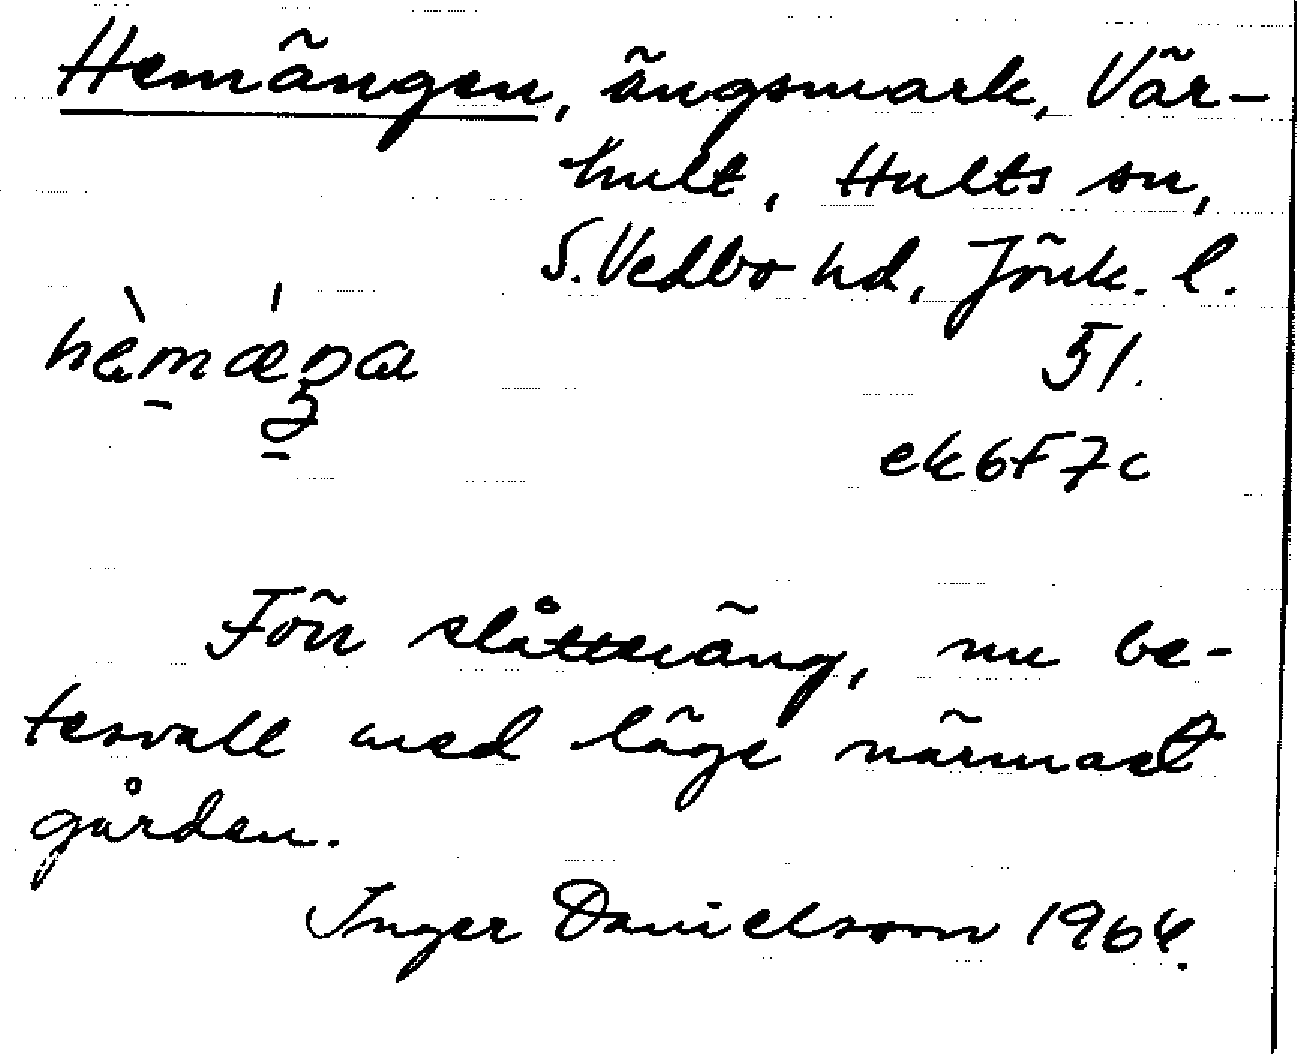 Hemängen, ängsmark, Vär-
hult, Hults sn,
S. Vedbo hd, Jönk. l.
51.
ek 6F7c
Förr slåtteräng, nu be-
tesvall med läge närmast
gården.
Inger Danielsson 1964.